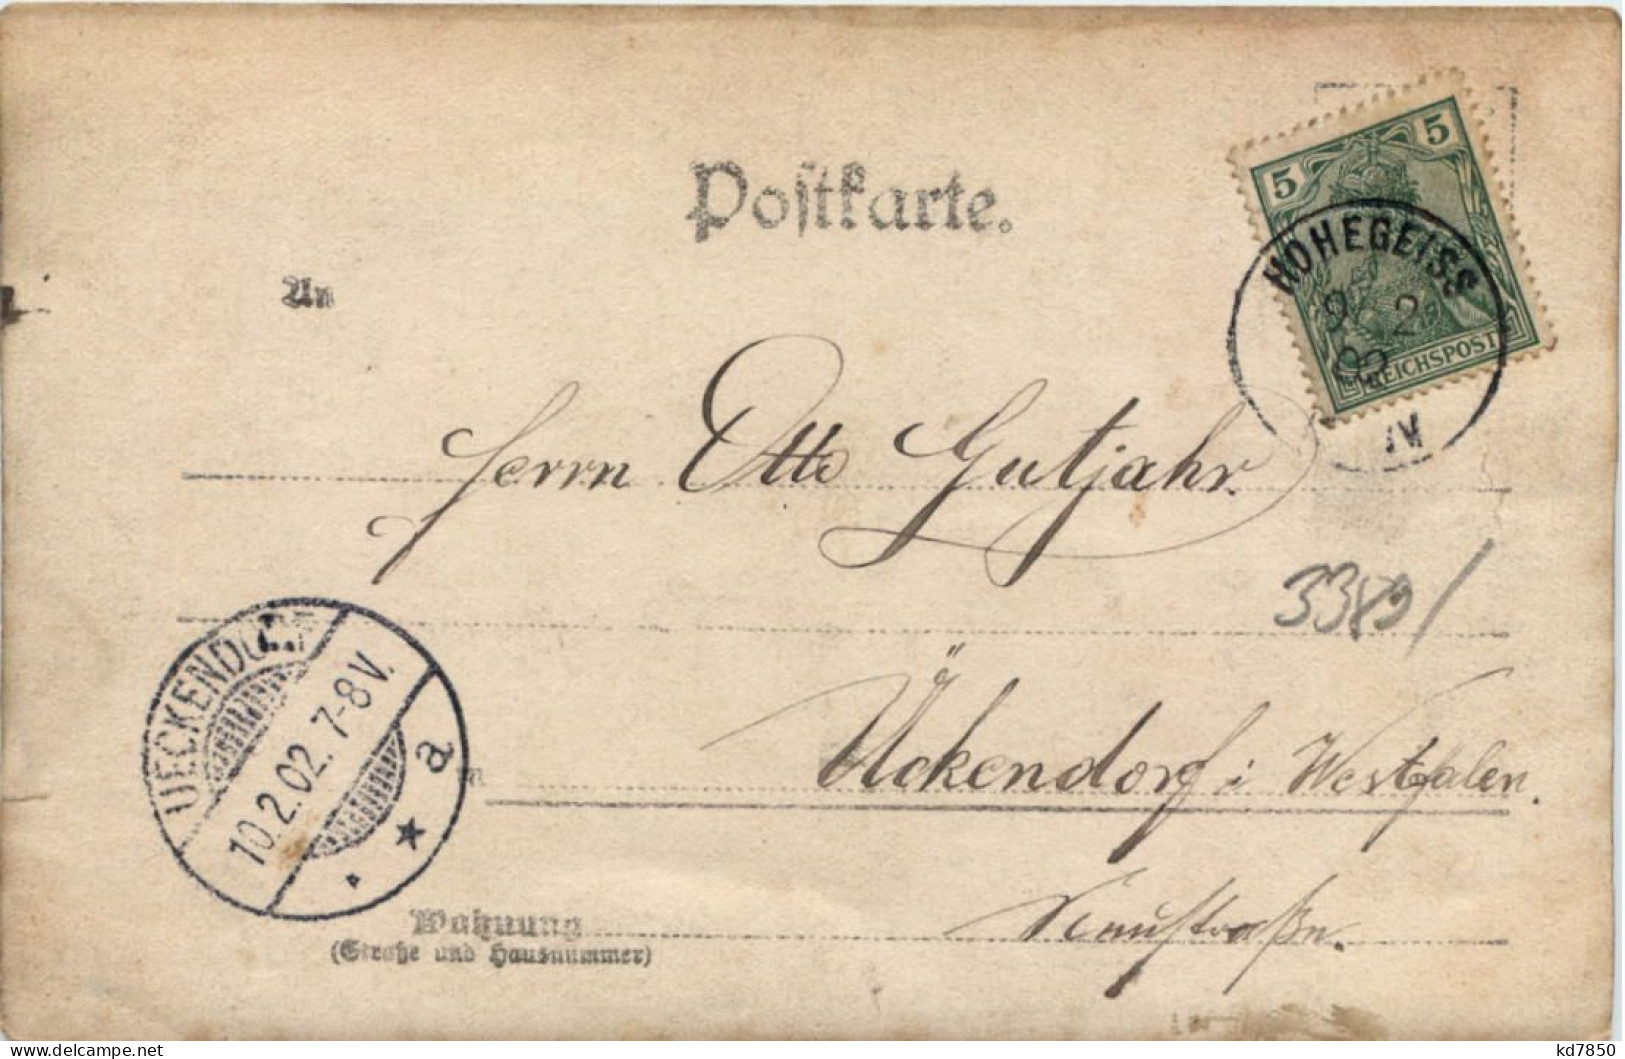 Postkarte.
5 5
HOHEGEISS
9 2
02
REICHSPOST
IV
An
Herrn Otto Gutjahr.
3389/
Ückendorf i Westfalen.
UECKENDORF
10.2.02. 7-8V.
a
Wohnung
(Straße und Hausnummer)
kd7850